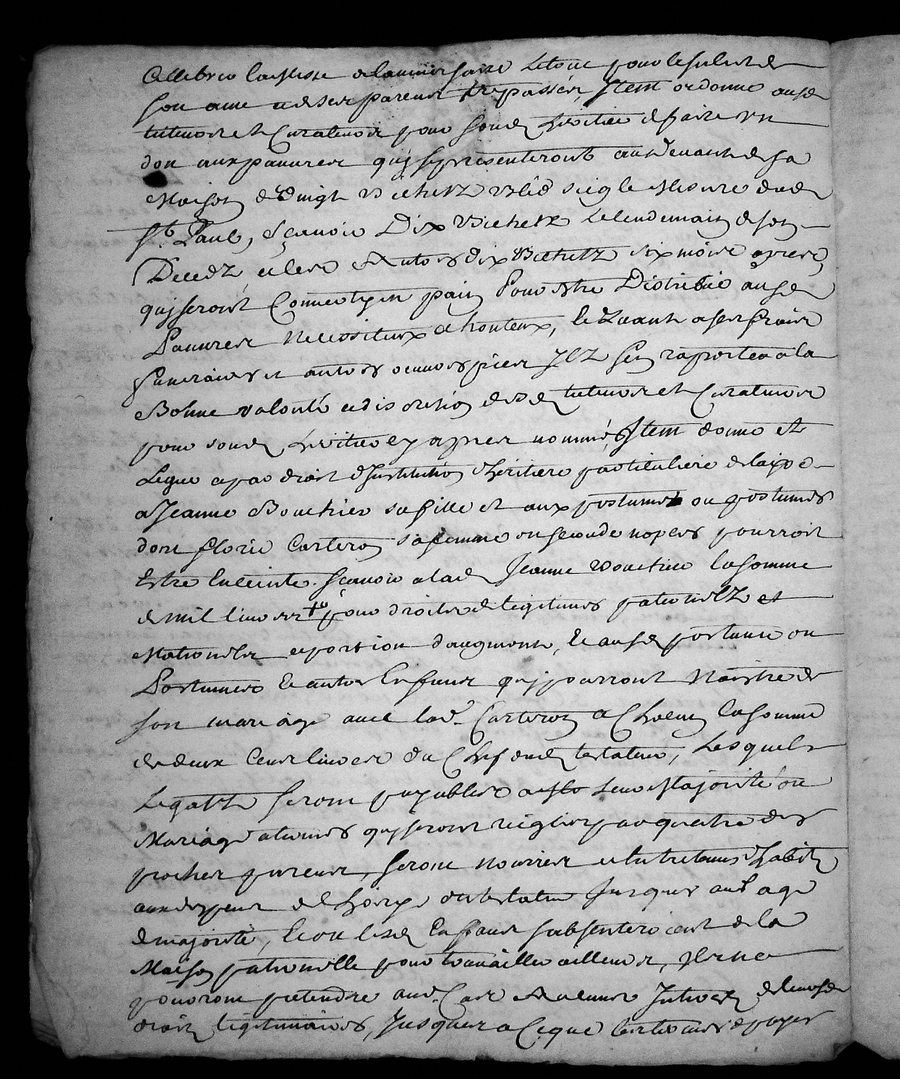 Celebrer la Messe de lanniversaire Le tout pour le salut de
son ame et de ses parens trepassés, Item ordonne ausd
tuteurs et Curateurs pour sond heritier de faire un
don aux pauvres quy se presenteront au devant de sa
Maison de Vingt Bichetz bled seigle Mesure dud
St Paul, Sçavoir Dix Bichetz Le lendemain de son
Decedz et les Autres dix Bichetz six mois apres
quy seront Convertis en pain Pour estre Distribué ausd
Pauvres Necessiteux et honteux, Et Quant a ses frais
funeraires et autres œuvres pies Il s'en raporte a la
Bonne volonté et discretion desd tuteurs et Curateurs
pour sond heritier cy apres nommé, Item donne et
Legue a par droit d'Institution d'heritiere particuliere delaisse
a Jeanne Bouchier sa fille et aux postumes ou postumes
dont florie Carteron sa femme en seconde nopces pourroit
Estre Enceinte. Sçavoir a lad Jeanne Bouchier la somme
de mil livres pour droitz de legitimes paternelz et
Maternelz et portion d'augment, Et ausd postume ou
Postumes et autres Enfans quy pourront Naistre de
son mariage avec lad. Carteron a Chacun la somme
de deux Cens livres du Chef dud testateur, Lesquels
Legatz seront payables a leur Majorité ou
Mariage a termes quy seront reigles par quatre des
proches parens, seront nourris et Entretenus d'habitz
aux despens de l'hoirye dud testateur Jusques aud age
de majorité, Et ou lesd Enfans s'absenteroient de la
Maison paternelle pour travailler ailleurs, Ils ne
pouront pretendre aud Cas Aucuns Interetz de leursd
droitz legitimaires, Jusques a Ceque les termes de payer